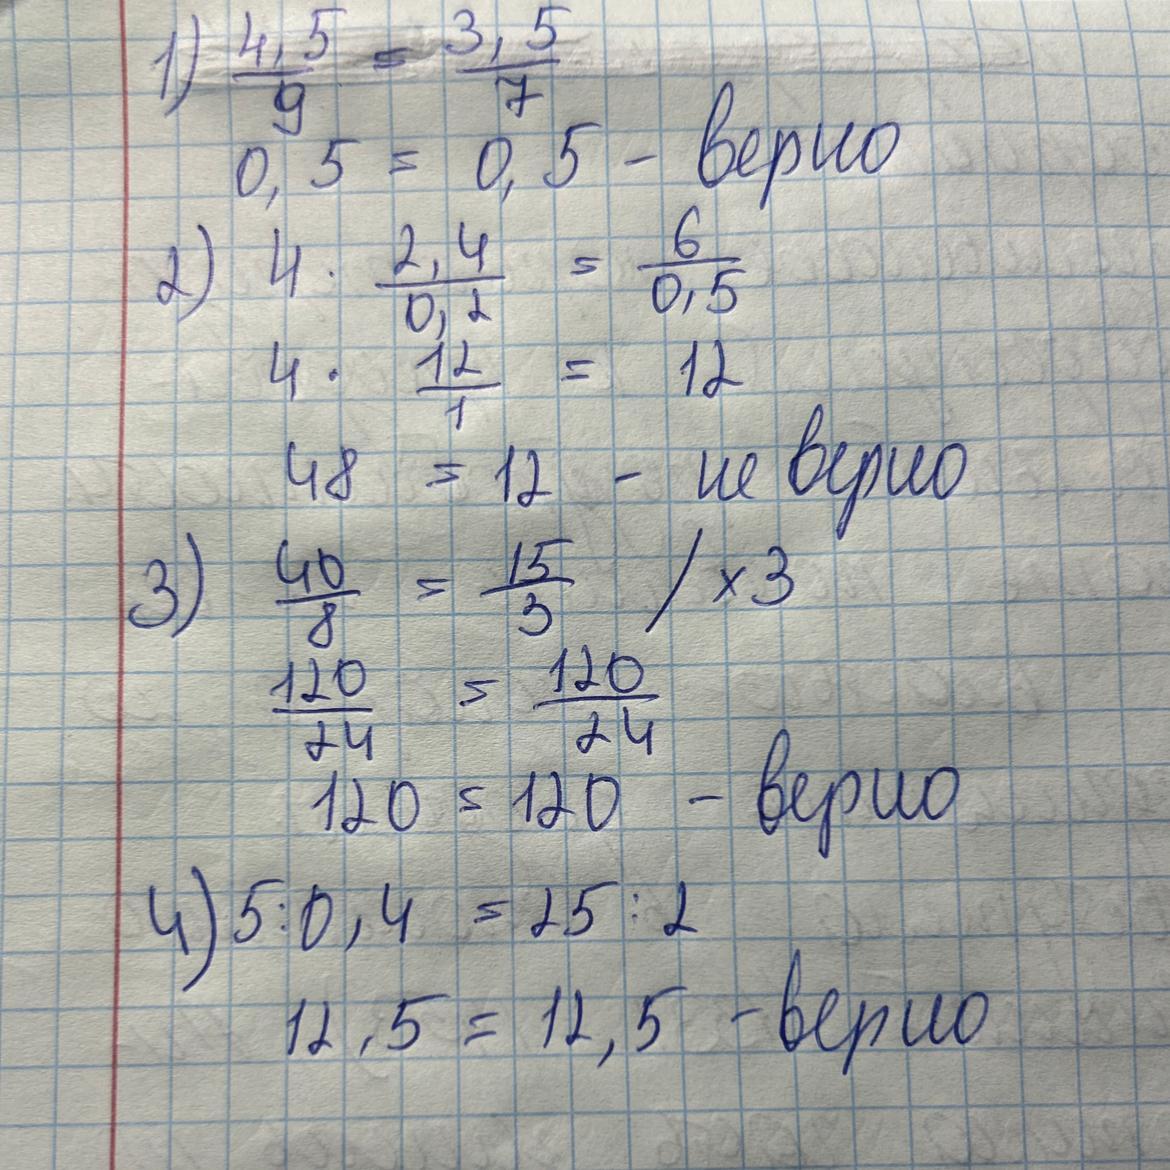 1) 4,5/9 = 3,5/7
0,5 = 0,5 - верно
2) 4 · 2,4/0,2 = 6/0,5
4 · 12/1 = 12
48 = 12 - не верно
3) 40/8 = 15/3 / ×3
120/24 = 120/24
120 = 120 - верно
4) 5:0,4 = 25:2
12,5 = 12,5 - верно